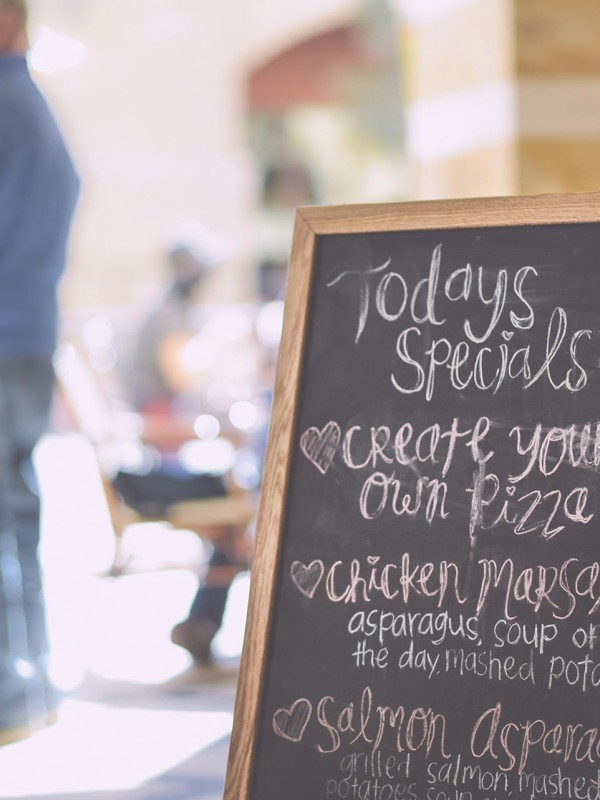 Todays
Specials
Create your
own Pizza
Chicken Marsa
asparagus, soup of
the day, mashed pota
Salmon Aspara
grilled salmon, mashed
potatoes soup